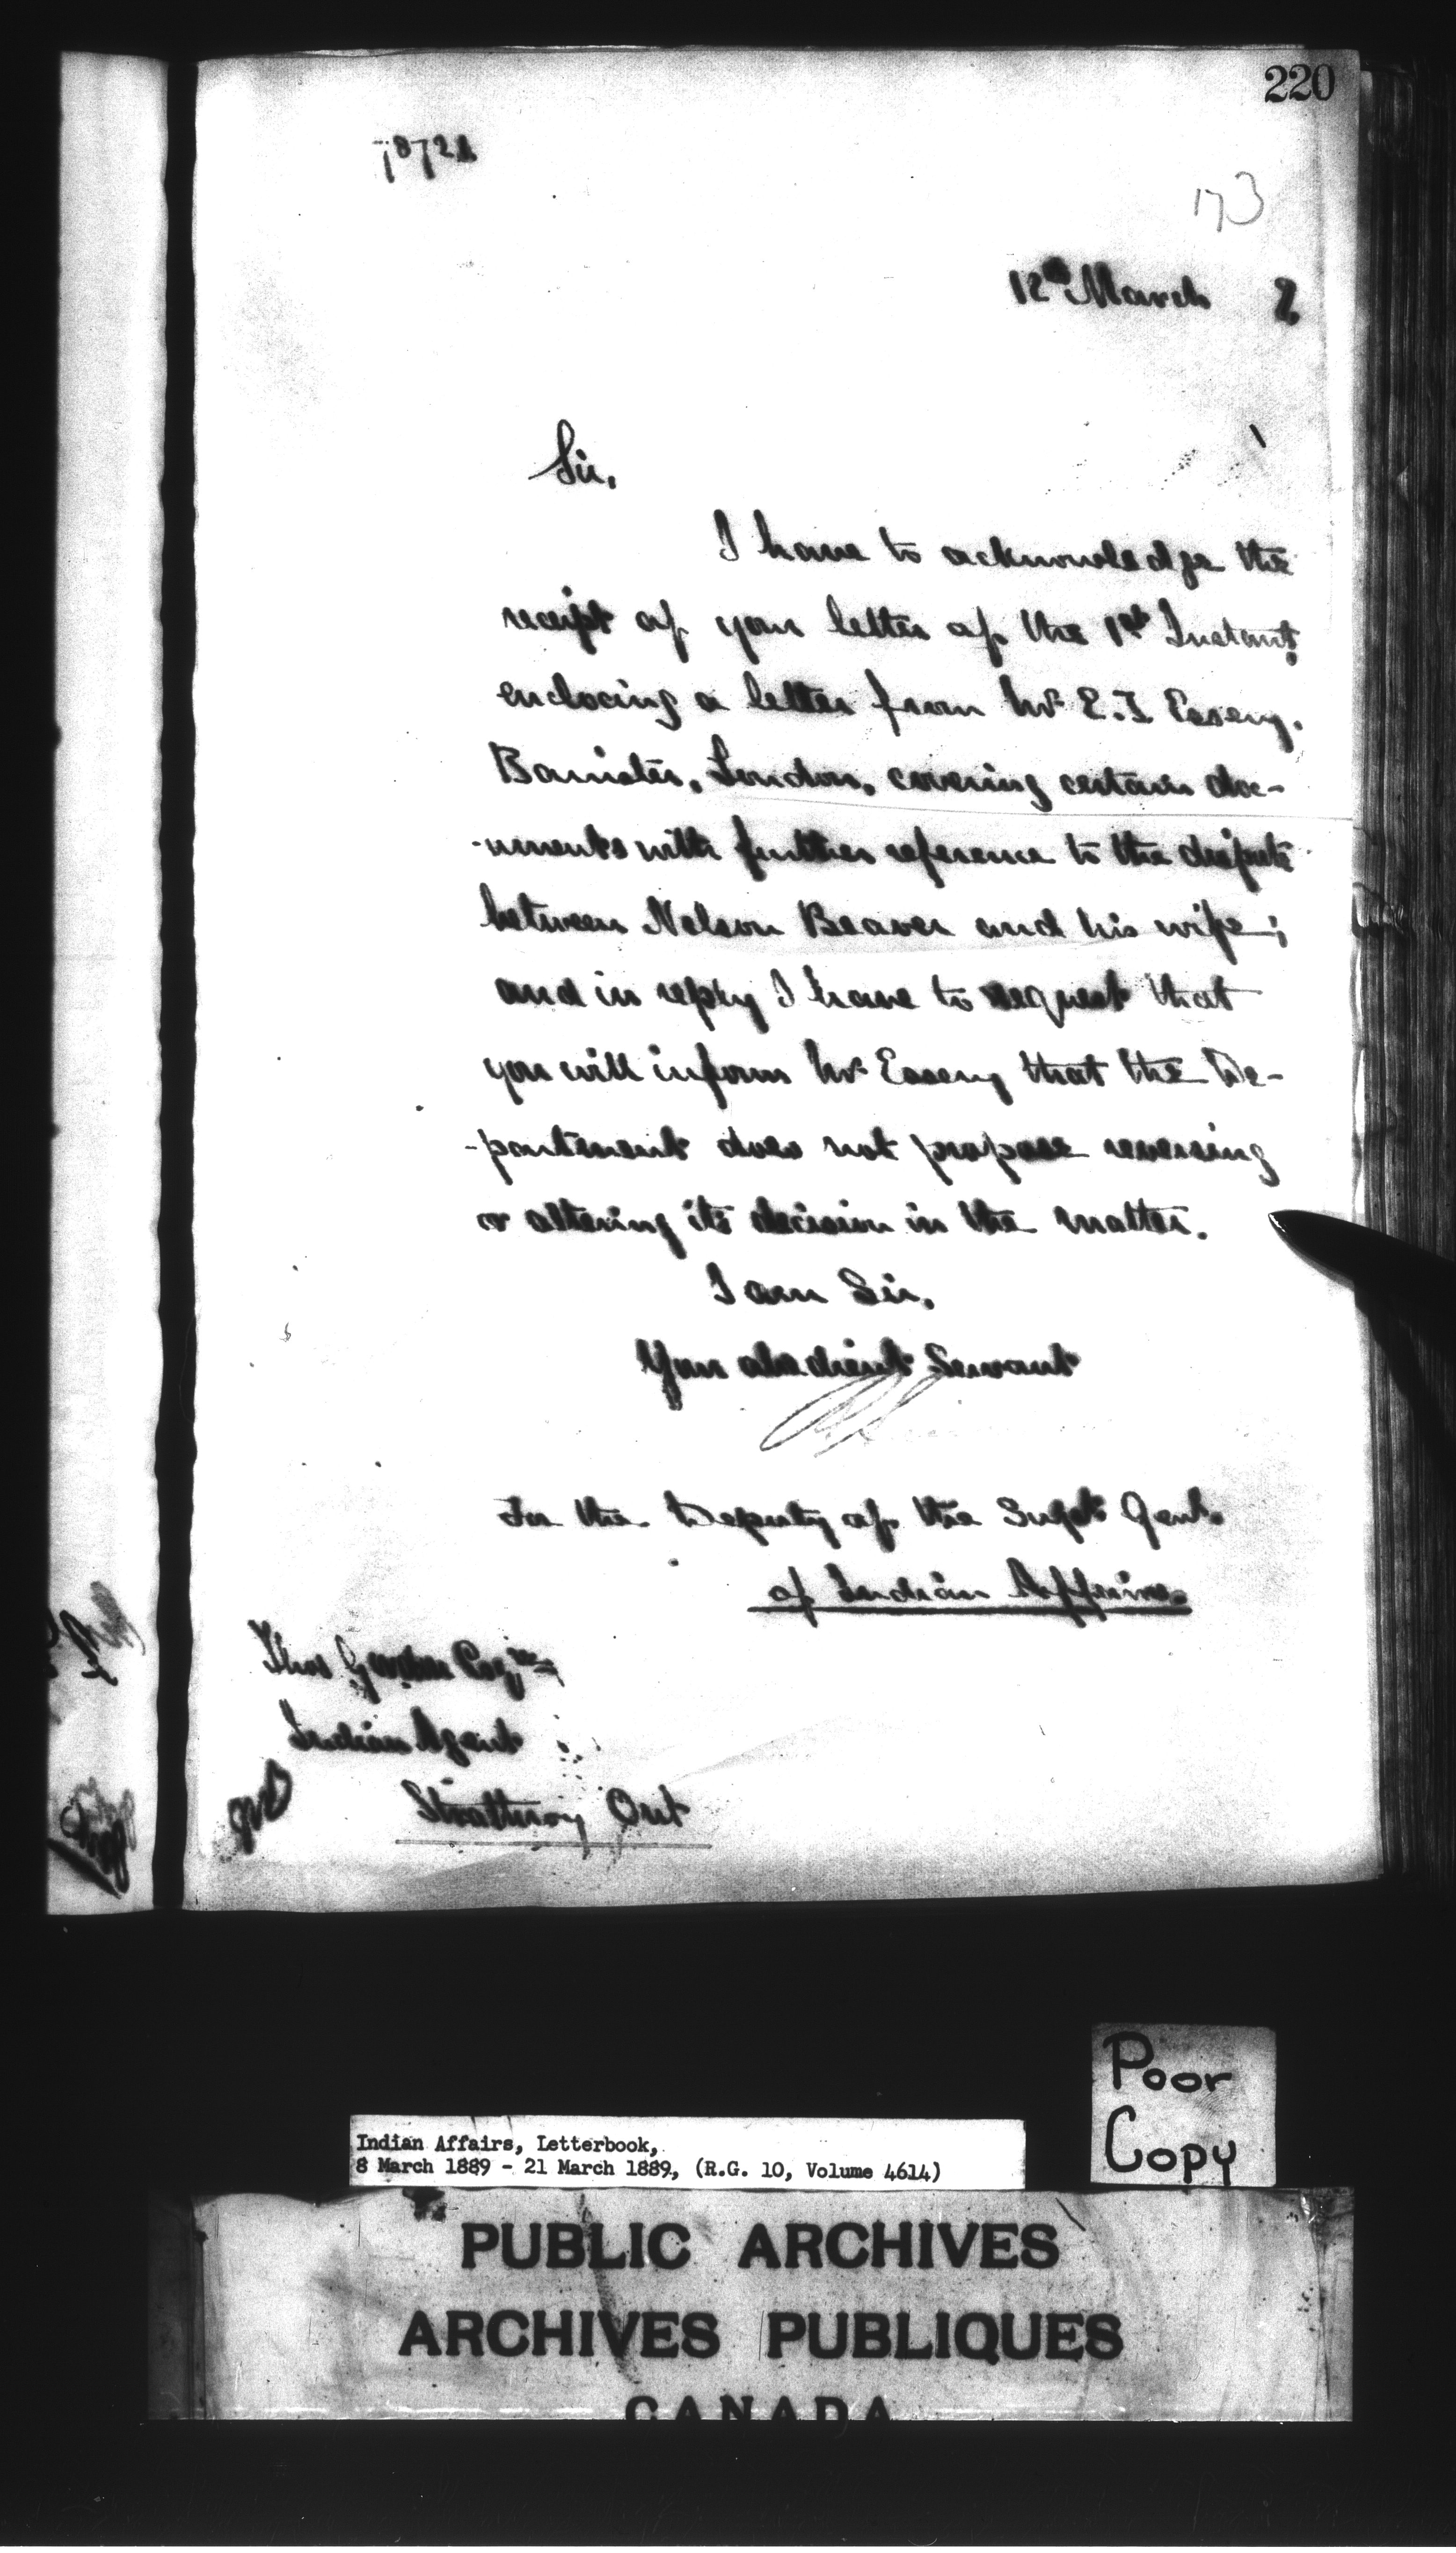 220
173
12th March
Sir,
I have to acknowledge the
receipt of your letter of the 1st Instant,
enclosing a letter from Mr. E. I.
Barrister, London, covering certain doc-
-uments with further reference to the dispute
between Nelson Beaver and his wife;
and in reply I have to request that
you will inform Mr. that the De-
-partment does not propose reversing
or altering its decision in the matter.
I am Sir,
Your obedient Servant
For the Deputy of the Supt Genl.
of Indian Affairs.
Thos Gordon Esqre,
Indian Agent
Strathroy Ont
Poor
Copy
Indian Affairs, Letterbook,
8 March 1889 - 21 March 1889, (R.G. 10, Volume 4614)
PUBLIC ARCHIVES
ARCHIVES PUBLIQUES
CANADA